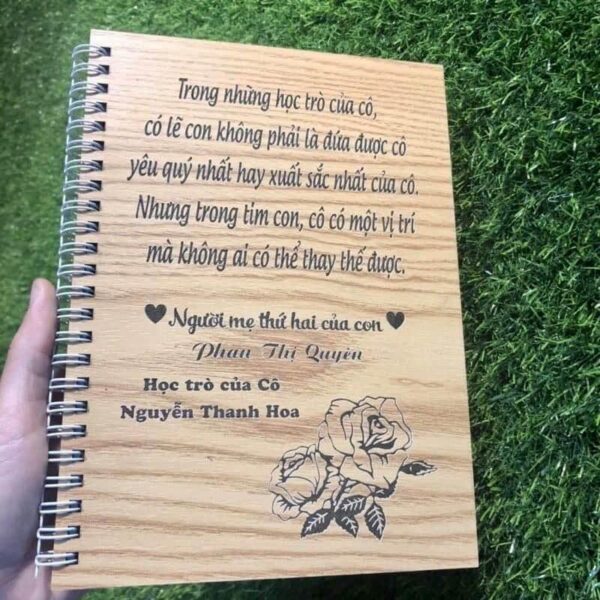 Trong những học trò của cô,
có lẽ con không phải là đứa được cô
yêu quý nhất hay xuất sắc nhất của cô.
Nhưng trong tim con, cô có một vị trí
mà không ai có thể thay thế được.
Người mẹ thứ hai của con
Phan Thị Quyên
Học trò của Cô
Nguyễn Thanh Hoa